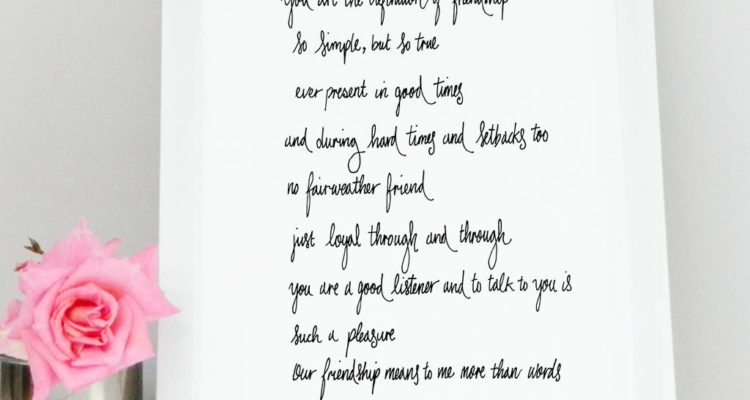 You are the definition of friendship
So simple, but so true
ever present in good times
and during hard times and setbacks too
no fairweather friend
just loyal through and through
you are a good listener and to talk to you is
such a pleasure
Our friendship means to me more than words